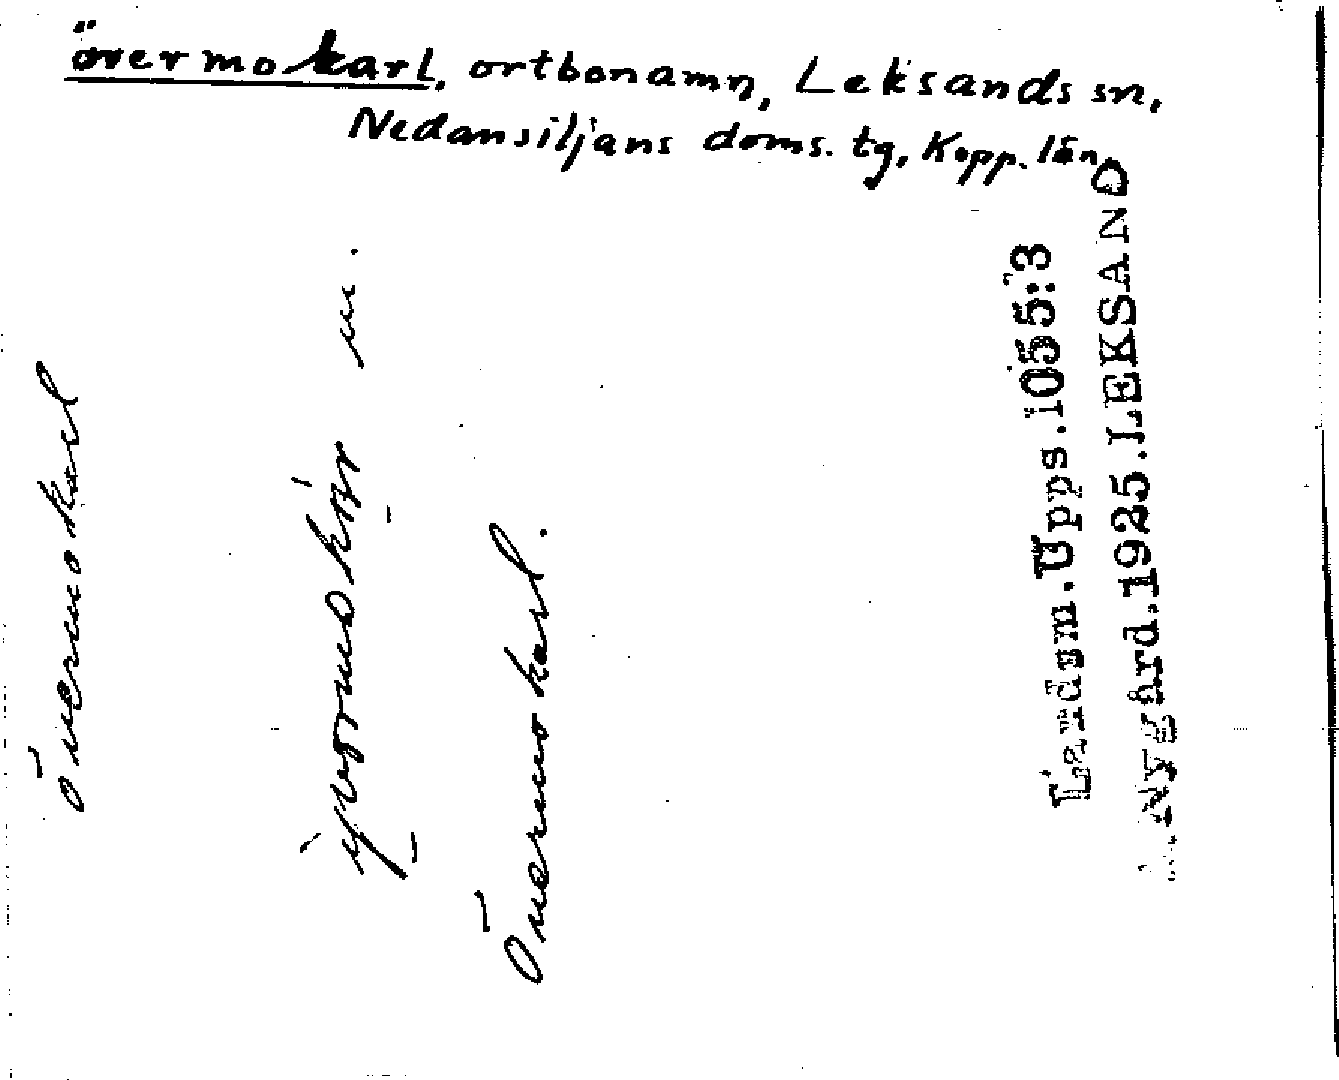 övermokarl, ortbonamn, Leksands sn,
Nedansiljans doms. tg, Kopp. län.
Övermokarl
m.
Övermokarl.
Landsm.Upps.1055:3
Nygård.1925.LEKSAND